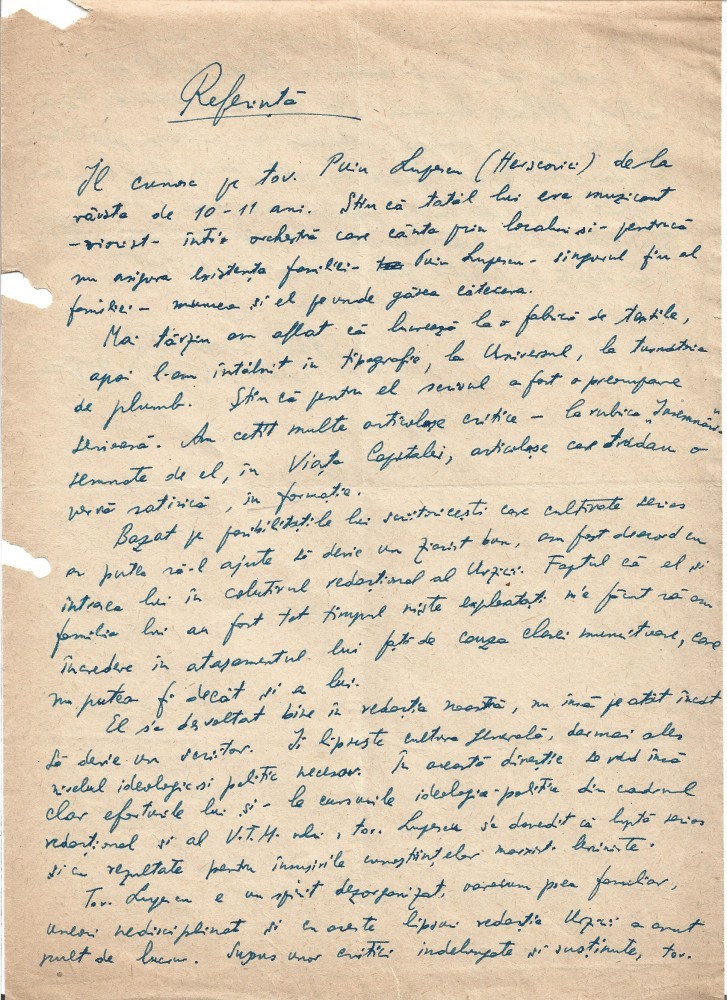 Referință
Îl cunosc pe tov. Puiu Lupescu (Herscovici) de la
vârsta de 10-11 ani. Știu că tatăl lui era muzicant
-viorist- într'o orchestră care cânta prin localuri și- pentrucă
nu asigura existența familiei- Puiu Lupescu- singurul fiu al
familiei- muncea și el pe unde găsea câteceva.
Mai târziu am aflat că lucrează la o fabrică de textile,
apoi l-am întâlnit în tipografie, la Universul, la turnătoria
de plumb. Știu că pentru el scrisul a fost o preocupare
serioasă. Am cetit multe articolașe critice - la rubrica „Însemnări"
semnate de el, în Viața Capitalei, articolașe care trădau o
vervă satirică, în formație.
Bazat pe posibilitățile lui scriitoricești care cultivate serios
ar putea să-l ajute să devie un ziarist bun, am fost deacord cu
intrarea lui în colectivul redacțional al Urzicii. Faptul că el și
familia lui au fost tot timpul niște exploatați m'a făcut să am
încredere în atașamentul lui față de cauza clasei muncitoare, care
nu putea fi decât și a lui.
El s'a desvoltat bine în redacția noastră, nu însă pe atât încât
să devie un scriitor. Îi lipsește cultura generală, dar mai ales
nivelul ideologic și politic necesar. În această direcție se văd însă
clar eforturile lui și- la cursurile ideologice-politice din cadrul
redacțional și al U.T.M.-ului, tov. Lupescu s'a dovedit că luptă serios
și cu rezultate pentru însușirile cunoștiințelor marxist-leniniste.
Tov. Lupescu e un spirit dezorganizat, oarecum prea familiar,
uneori nedisciplinat și cu aceste lipsuri redacția Urzicii a avut
mult de lucru. Supus unor critici îndelungate și susținute, tov.